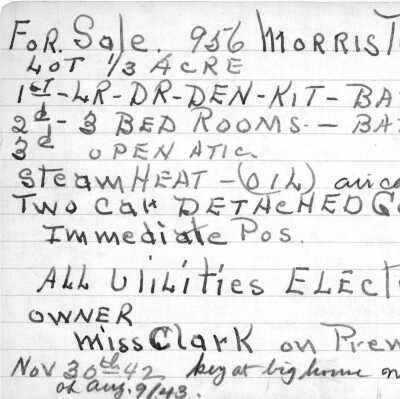 FOR. Sale. 956 MORRIS T
LOT 1/3 ACRE
1ST-LR-DR-DEN-KIT-BA
2d-3 BED ROOMS-- BA
3d OPEN ATIC
Steam HEAT-(OIL)
TWO Car DETACHED G
Immediate Pos.
ALL Utilities ELECT
OWNER
miss Clark on Prem
Nov 30th 42 key at big house on
ok Aug. 9/43.